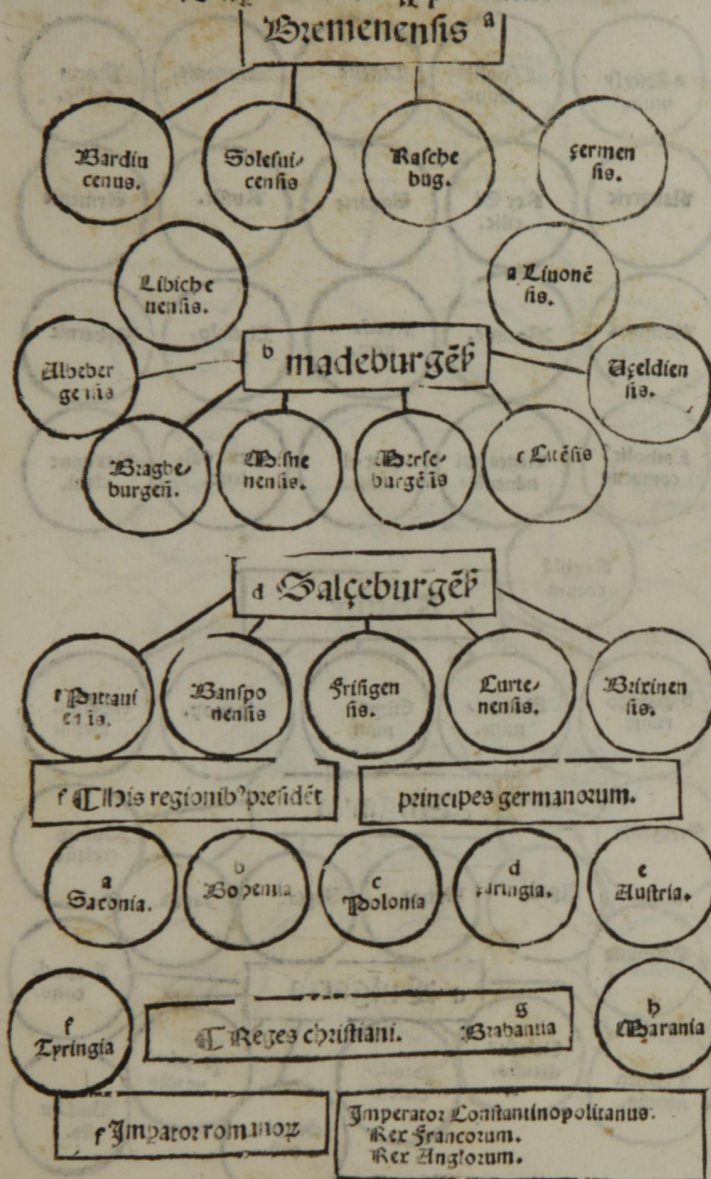 Bremenensis a
Bardiu
cenus.
Solesui-
censis
Rasche
bug.
çermen
sis.
Libiche
nensis.
a Liuonē
sis.
Albeber
gensis
b madeburgēs
Uçeldien
sis.
Bragbe-
burgeñ.
Misne
nensis.
Merse-
burgēsis
c Cicēsis
d Salçeburgēs
e
Banspo
nensis
Frisigen
sis.
Curte-
nensis.
Brixinen
sis.
f ¶ His regionibꝰ presidēt
principes germanorum.
a
Saconia.
b
Bohemia
c
Polonia
d
e
Austria.
f
Tyringia
¶ Reges christiani.
g
Brabantia
h
Marania
f Impator romanoꝝ
Imperator Constantinopolitanus.
Rex Francorum.
Rex Anglorum.